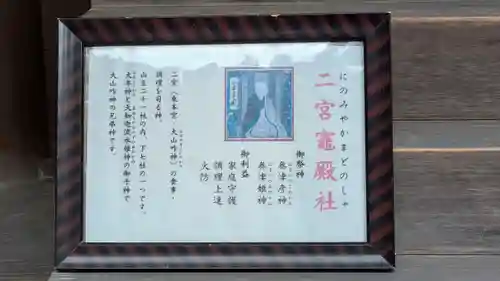 二宮竈殿社
にのみやかまどのしゃ
御祭神
奥津彦神
奥津姫神
御利益
家庭守護
調理上達
火防
二宮(東本宮・大山咋神)の食事・
調理を司る神。
山王二十一社の内、下七社の一つです。
大年神と天知迦流水姫神の御子神で
大山咋神の兄弟神です。